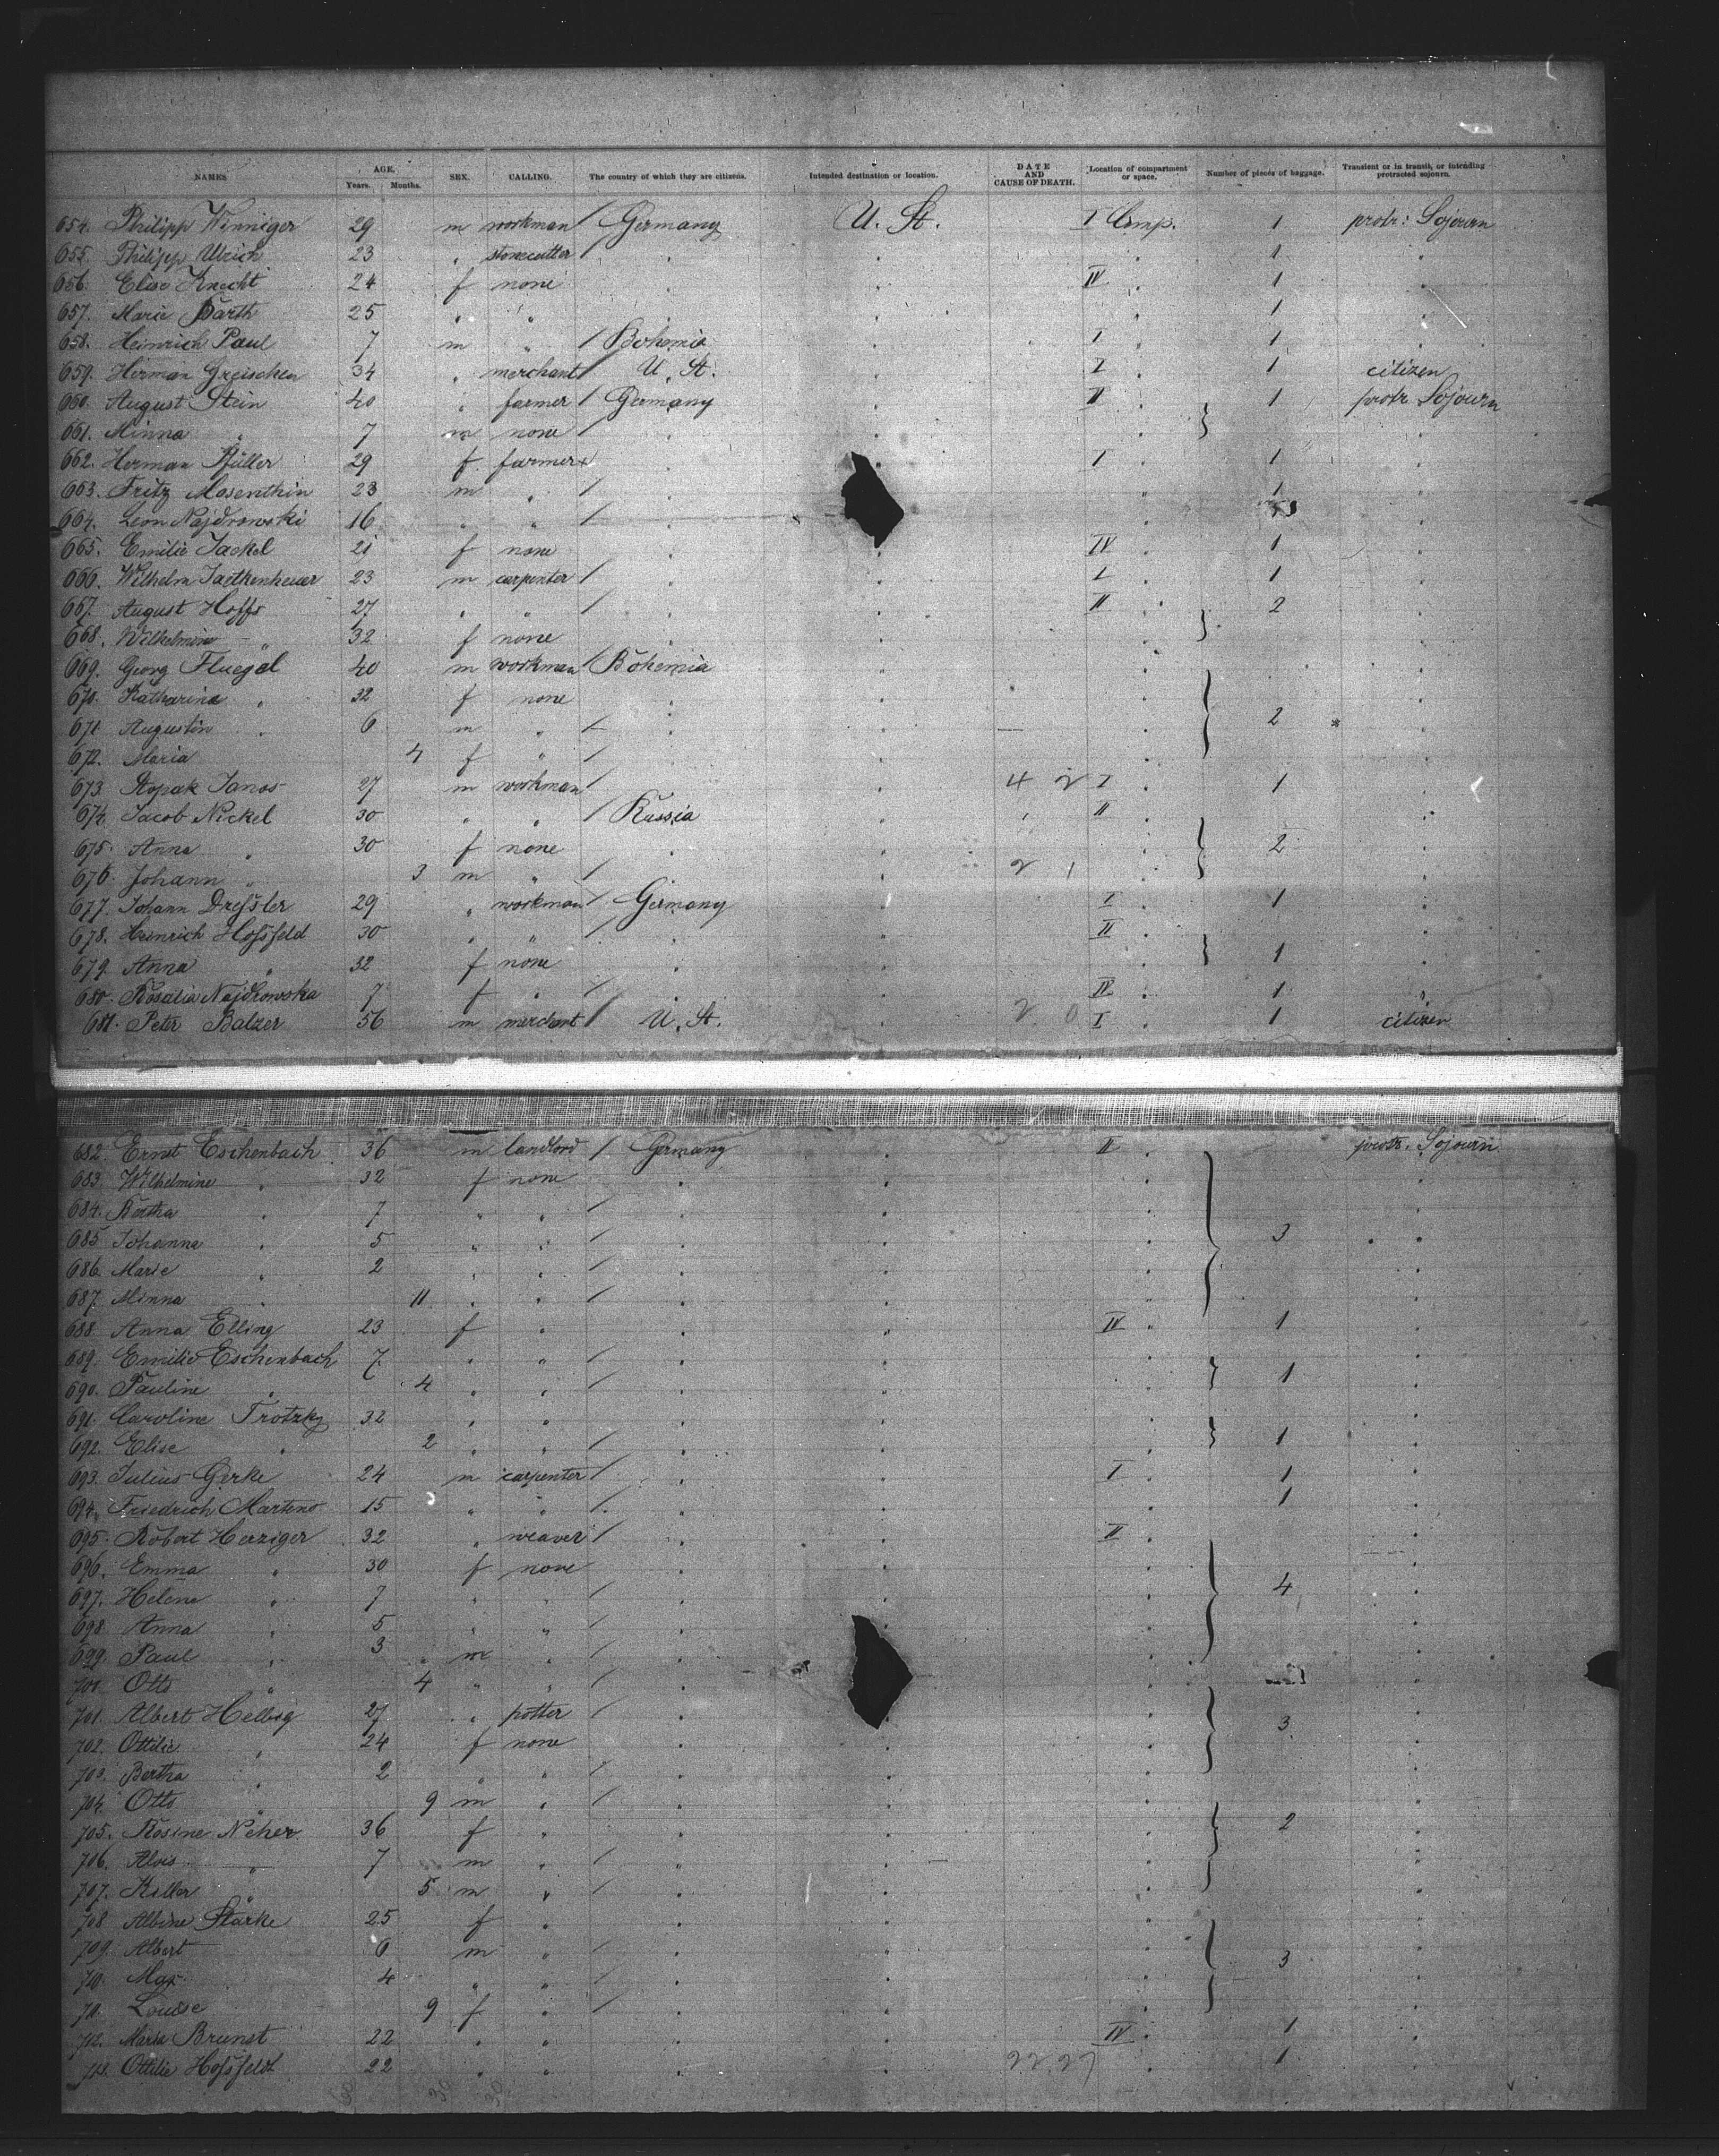 NAMES AGE. Years. Months. SEX. CALLING. The country of which they are citizens. Intended destination or location. DATE AND CAUSE OF DEATH. Location of compartment or space. Number of pieces of baggage. Transient or in transit, or intending protracted sojourn.
654. Philipp Winniger 29 m workman / Germany U. St. I Comp. 1 protr: Sojourn
655. Philipp Ulrich 23 " stonecutter / " " " 1 "
656. Elise Knecht 24 f none " " IV " 1 "
657. Marie Barth 25 " " " " " 1 "
658. Heinrich Paul 7 m " / Bohemia " I " 1 "
659. Herman Greischen 34 " merchant / U. St. " I " 1 citizen
660. August Stein 40 " farmer / Germany " II " 1 protr Sojourn
661. Minna " 7 m none / " " " "
662. Herman Müller 29 f farmer " " I " 1 "
663. Fritz Mosenthin 23 m " / " " 1 "
664. Leon Najdrowski 16 " " / " " "
665. Emilie Jackel 21 f none " " IV " 1 "
666. Wilhelm 23 m carpenter / " " I " 1 "
667. August Hoffs 27 " " / " " II " 2 "
668. Wilhelmine " 32 f none " " " "
669. Georg Fluegel 40 m workman / Bohemia " " "
670. Katharina " 32 f none " " " "
671. Augustin " 6 m " / " " " 2 "
672. Maria 4 f " / " " "
673. Kopak Janos 27 m workman / " 4 2 I " 1 "
674. Jacob Nickel 30 " " / Russia " II " "
675. Anna " 30 f none " " " 2 "
676. Johann " 3 m " / " 2 1 " "
677. Johann Dressler 29 " workman / Germany " I " 1 "
678. Heinrich Hossfeld 30 " " / " " II " "
679. Anna " 32 f none " " " 1 "
680. Rosalia Najdrowska 7 f " / " " IV " 1 "
681. Peter Balzer 56 m merchant / U. St. " 2 0 I " 1 citizen
682. Ernst Eschenbach 36 m landlord / Germany " II " protr. Sojourn
683. Wilhelmine " 32 f none " " " "
684. Bertha " 7 " " / " " " "
685. Johanna " 5 " " / " " " 3 "
686. Marie " 2 " " / " " " "
687. Minna " 11 " " / " " " "
688. Anna Elling 23 f " " " IV " 1 "
689. Emilie Eschenbach 7 " " / " " " 1 "
690. Pauline " 4 " " / " " " "
691. Caroline Trotzky 32 " " " " " "
692. Elise " 2 " " / " " " 1 "
693. Julius Gerke 24 m carpenter / " " I " 1 "
694. Friedrich Martens 15 " " / " " " 1 "
695. Robert Herziger 32 " weaver / " " II " "
696. Emma " 30 f none " " " "
697. Helene " 7 " " / " " " 4 "
698. Anna " 5 " " / " " " "
699. Paul " 3 m " / " " " "
700. Otto " 4 " " / " " " "
701. Albert Helbig 27 " potter / " " " 3 "
702. Ottilie " 24 f none " " " "
703. Bertha " 2 " " / " " " "
704. Otto " 9 m " / " " " "
705. Rosine Neher 36 f " " " " 2 "
706. Alois " 7 m " / " " " "
707. Killer " 5 m " / " " " "
708. Albine Starke 25 f " " " " "
709. Albert 6 m " / " " " 3 "
710. Max 4 " " / " " " "
711. Louise 9 f " / " " " "
712. Maria Brunst 22 " " " " IV " 1 "
713. Ottilie Hossfeldt 22 " " " " 22 27 " 1 "